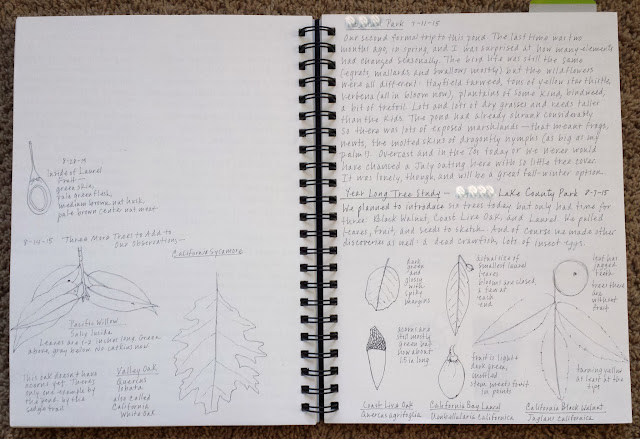 8-28-15
Inside of Laurel
Fruit —
green skin,
pale green flesh,
medium brown nut husk
pale brown center nut meat.
8-14-15 Three More Trees to Add to
Our Observations —
California Sycamore
Pacific Willow
Salix lucida
Leaves are 1-2 inches long. Green
above, gray below. No catkins now.
This oak doesn't have
acorns yet. There's
only one example by
the pond, by the
Valley Oak
Quercus
lobata
also called
California
White Oak
Park 7-11-15
Our second formal trip to this pond. The last time was two
months ago, in spring, and I was surprised at how many elements
had changed seasonally. The bird life was still the same
(egrets, mallards and swallows mostly) but the wildflowers
were all different. Hayfield tarweed, tons of yellow star thistle,
verbena (all in bloom now), plantains of some kind, bindweed,
a bit of trefoil. Lots and lots of dry grasses and reeds taller
than the kids. The pond had already shrunk considerably
so there was lots of exposed marshlands — that meant frogs,
newts, the molted skins of dragonfly nymphs (as big as my
palm!). Overcast and in the 70s today or we never would
have chanced a July outing here with so little tree cover.
It was lovely, though, and will be a great fall-winter option.
Year Long Tree Study — Lake County Park 8-7-15
We planned to introduce six trees today but only had time for
three: Black Walnut, Coast Live Oak and Laurel. We pulled
leaves, fruit, and seeds to sketch. And of course we made other
discoveries as well: a dead crawfish, lots of insect eggs.
Dark
green
and
glossy
with
spiky
margins
actual size of
smallest laurel
leaves
blooms are closed,
a few at
each
end
nut has
jagged
teeth
trees there
are
without
fruit
acorns are
still mostly
green but
now about
1.5 in long
fruit is light +
dark green,
mottled
stem meets fruit
in points
turning yellow
at least at the
tips
Coast Live Oak
Quercus agrifolia
California Bay Laurel
Umbellularia californica
California Black Walnut
Juglans californica